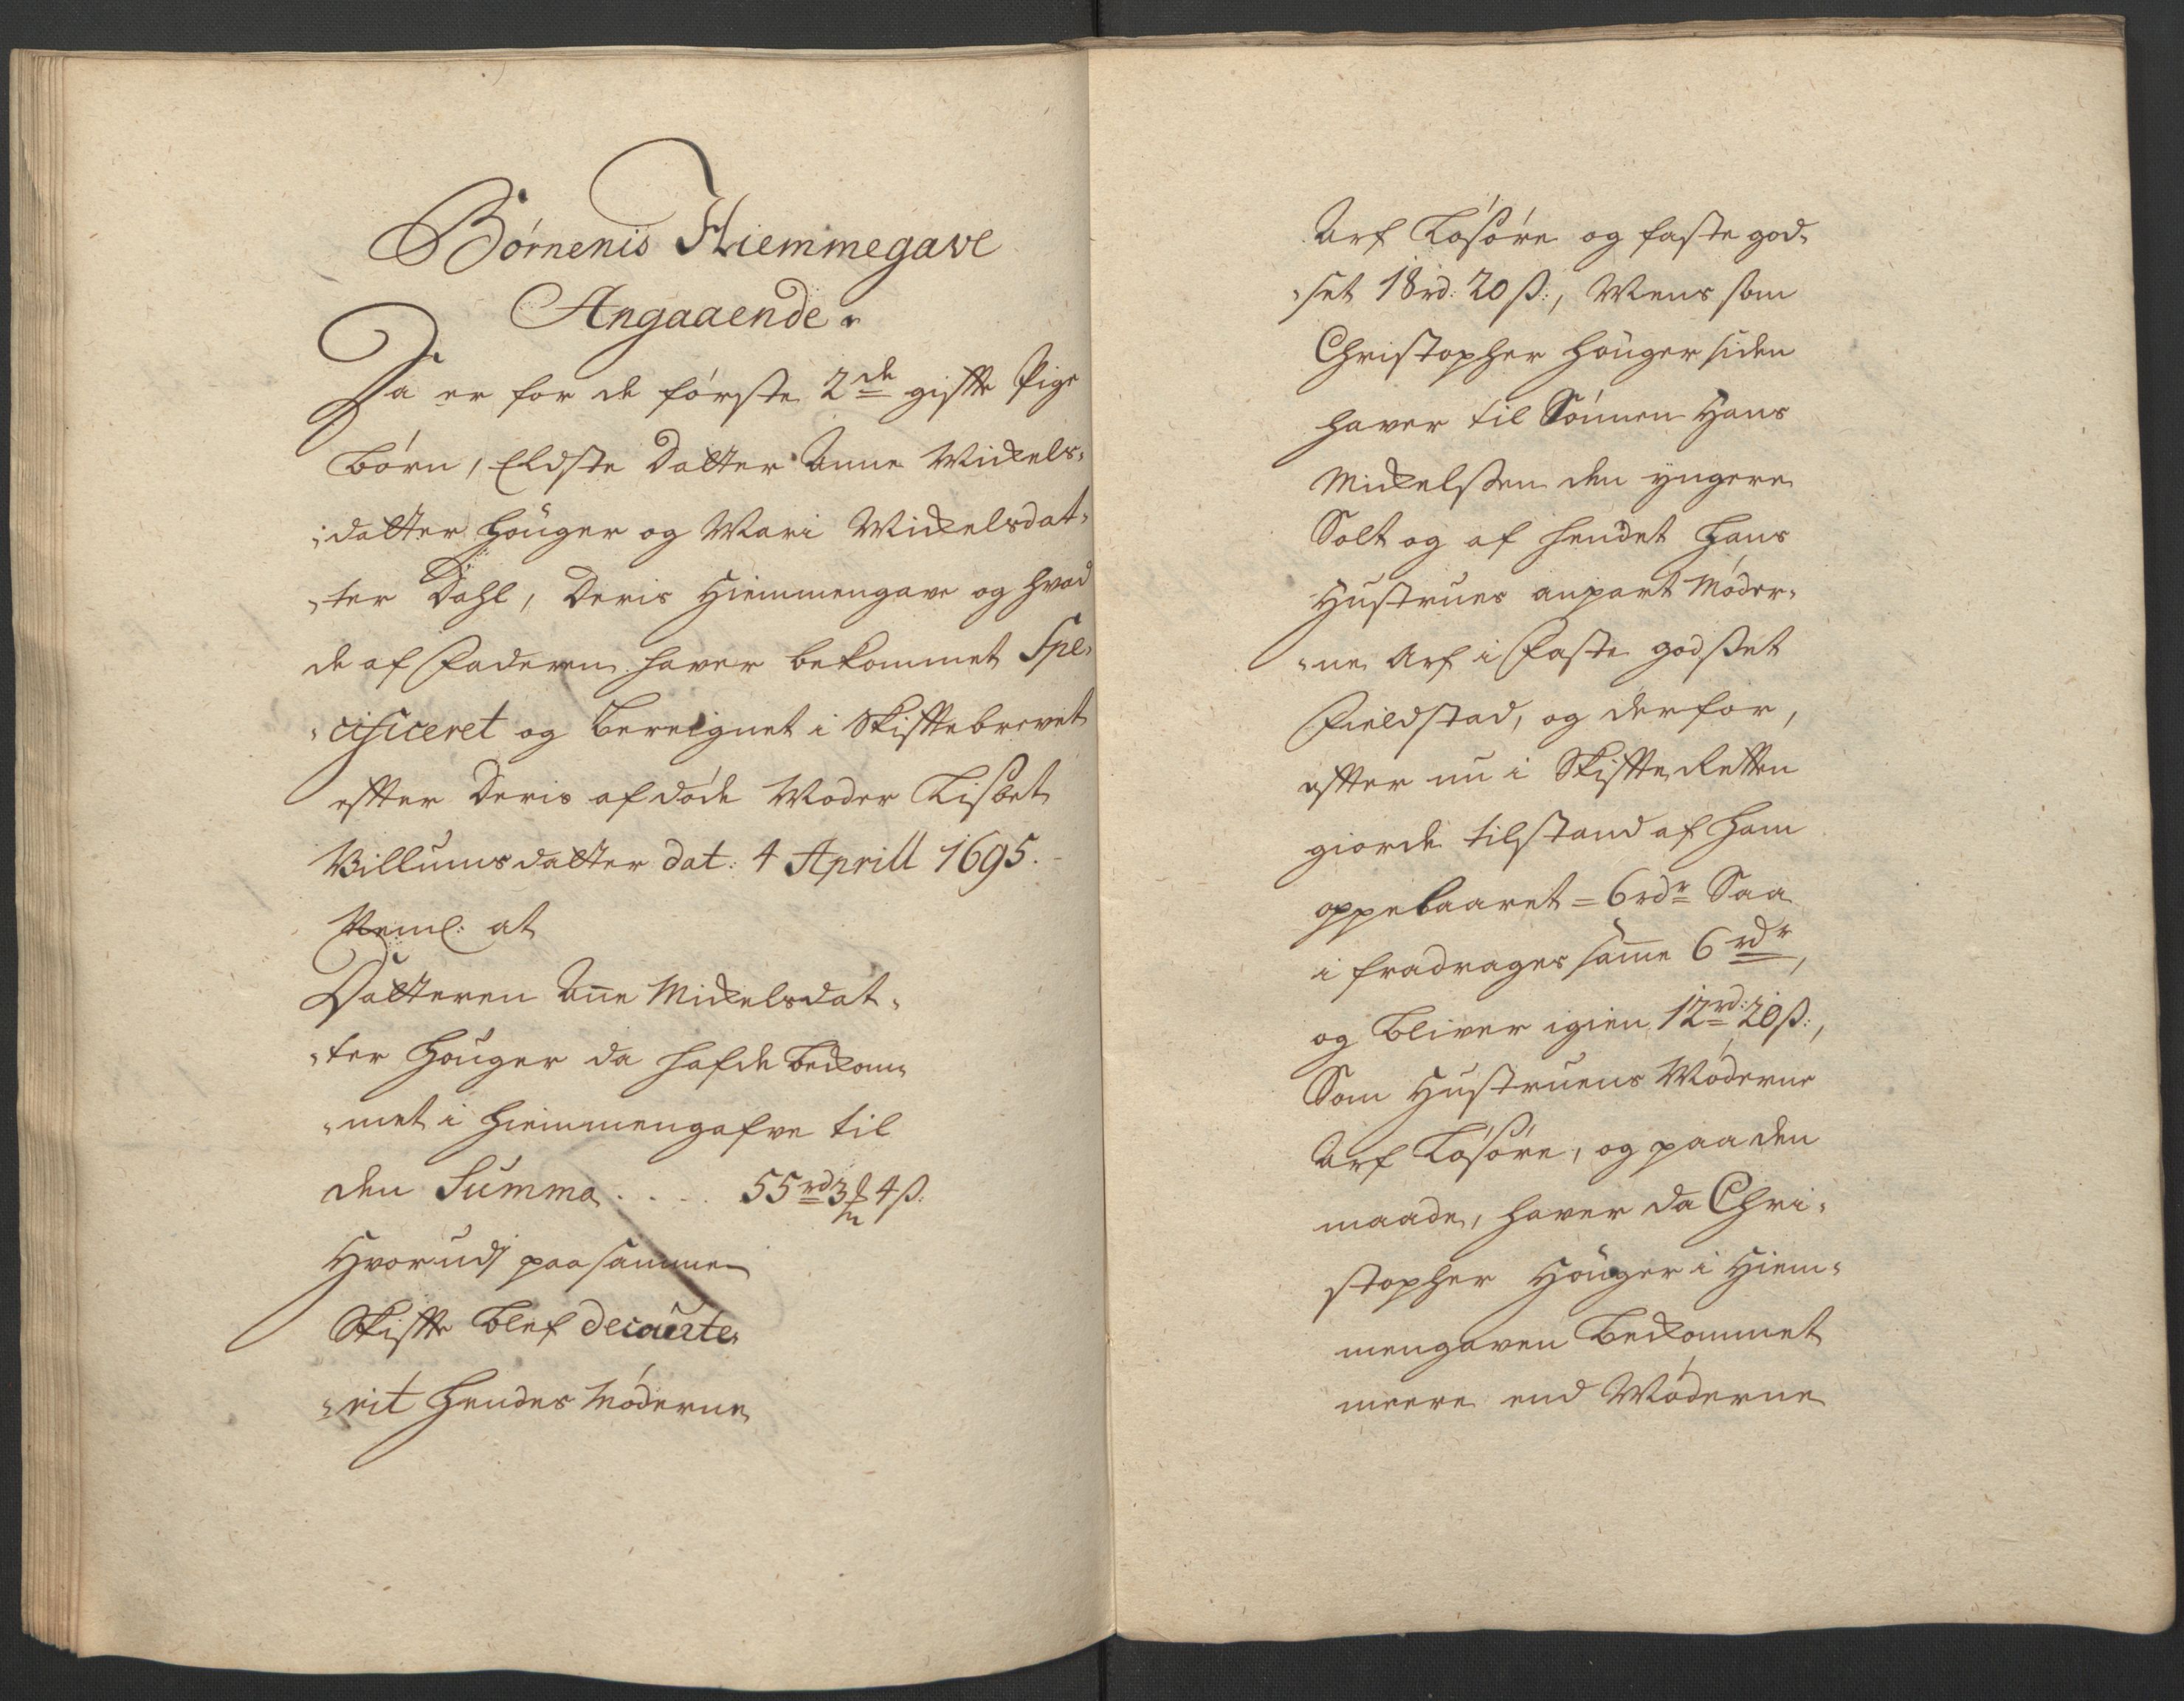 Börnenis Hiemmegave
Angaaende.
Da er for de förste 2de giffte Pige
börn, Eldste Datter Anne Mickels-
-datter Höuger og Mari Mickelsdat-
-ter Dahl, Deris Hiemmengave og hvad
de af Faderen haver bekommet Spe-
-cificeret og bereignet i Skifftebrevet
effter Deris afdöde Moder Lisbet
Villumsdatter dat: 4 Aprill 1695.
Neml: at
Datteren Ane Mickelsdat-
-ter Höuger da hafde bekom-
-met i Hiemmengafve til
den Summa . . . . 55 rd 3 ℔ 4 ß:
Hvorudj paa samme
Skiffte blef decourte-
-rit Hendes Möderne
Arf Lösöre og faste god-
-set 18 rd: 20 ß:, Mens som
Christopher Höuger siden
haver til Sönnen Hans
Mickelssen den yngere
Solt og af hendet Hans
Hustrues anpart Möder-
-ne Arf i Faste godsset
Fieldstad, og derfor,
effter nu i Skiffte Retten
giorde tilstand af Ham
oppebaaret = 6 rdr Saa
i fradrages samme 6 rdr,
og bliver igien 12 rd: 20 ß:,
Som Hustruens Möderne
Arf Lösöre, og paa den
maade, haver da Chri-
stopher Höuger i Hiem-
mengaven bekommet
meere end Möderne